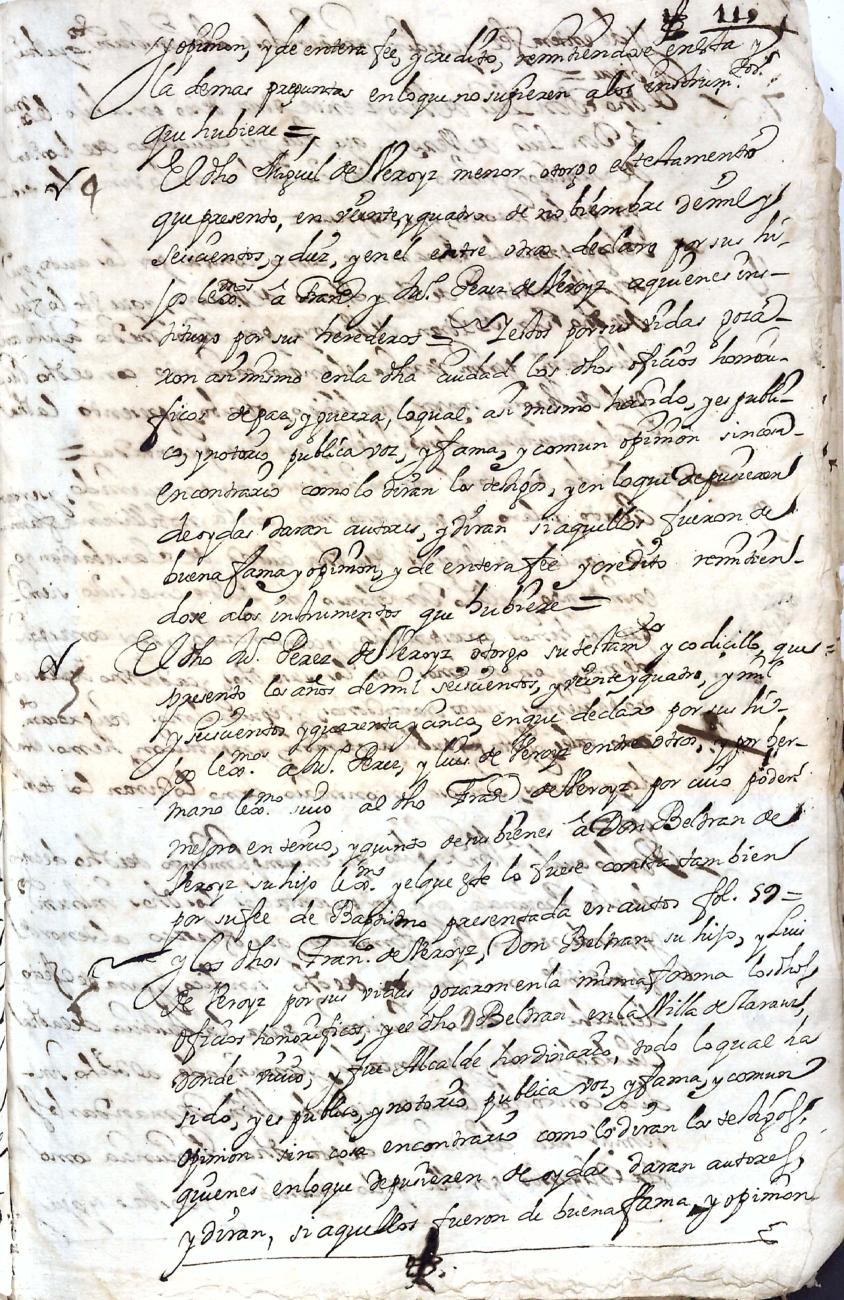 119
y opinion, y de entera fee, y credito, remitiendose en esta y
la demas preguntas en lo que no sufieren a los instrum.tos
que hubiere =
El dho Miguel de Veroyz menor otorgo el testamento
que presento, en veinte y quatro de nobiembre de mil y
seiscientos, y diez, y en el entre otros declaro por sus hi-
jos lexmos. â Franco y M.l Perez de Veroyz a quienes ins-
tituyo por sus herederos = Y estos por sus vidas goza-
ron asi mismo en la dha ciudad los dhos oficios honori-
ficos de paz, y guerra, lo qual, asi mesmo ha sido, y es publi-
co, y notorio publica voz, y fama, y comun opinion sin cosa
en contrario como lo diran los testigos, y en lo que depusieren
de oydas daran autores, y diran si aquellos fueron de
buena fama y opinion, y de entera fee y credito remitien-
dose a los instrumentos que hubiere =
El dho M.l Perez de Veroyz otorgo su testamto y codicillo, que
presento los años de mil seiscientos, y veinte y quatro, y mil
y seiscientos y quarenta y cinco, en que declaro por sus hi-
jos lexmos. a M.l Perez, y Luis de Veroyz entre otros, y por her-
mano lexmo. suio al dho Franco de Veroyz por cuio poder
mejoro en tercio, y quinto de sus bienes â Don Beltran de
Veroyz su hijo lexmo. y el que este lo fuese consta tambien
por su fee de Baptismo presentada en autos fol. 59 =
y los dhos Fran.co de Veroyz, Don Beltran su hijo, y Luis
de Veroyz por sus vidas gozaron en la misma forma los dhos
oficios honorificos, y el dho D Beltran en la Villa de Zarauz,
donde vivio, y fue Alcalde hordinario, todo lo qual ha
sido, y es publico, y notorio publica voz, y fama, y comun
opinion sin cosa en contrario como lo diran los testigos,
quienes en lo que depusieren de oydas daran autores,
y diran, si aquellos fueron de buena fama, y opinion